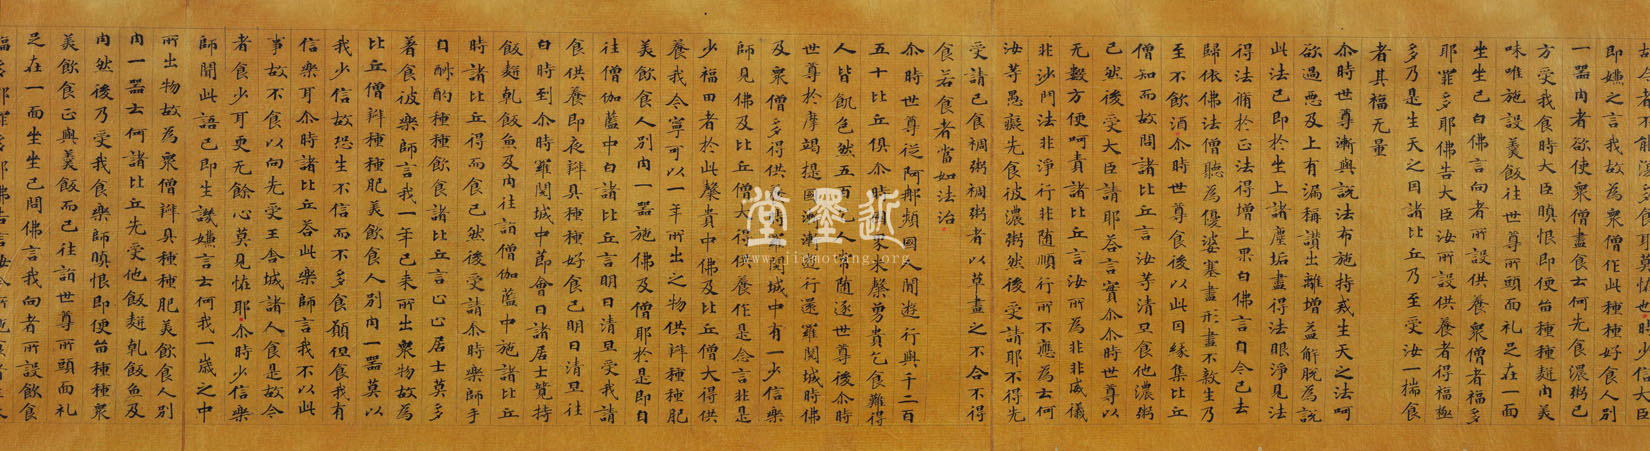 即嫌之言我故為衆僧作此種種好食人別
一器肉者欲使衆僧盡食云何先食濃粥已
方受我食時大臣瞋恨即便留種種麨肉美
味唯施設羹飯往世尊所頭面礼足在一面
坐坐已白佛言向者所設供養衆僧者福多
耶罪多耶佛告大臣汝所設供養者得福極
多乃是生天之因諸比丘乃至受汝一揣食
者其福无量
尒時世尊漸與説法布施持戒生天之法呵
欲過惡及上有漏稱讃出離增益解脫為説
此法已即於坐上諸塵垢盡得法眼淨見法
得法脩於正法得增上果白佛言自今已去
歸依佛法僧聽為優婆塞盡形盡不煞生乃
至不飲酒尒時世尊食後以此因緣集比丘
僧知而故問諸比丘言汝等清旦食他濃粥
已然後受大臣請耶荅言實尒尒時世尊以
无數方便呵責諸比丘言汝所為非非威儀
非沙門法非淨行非随順行所不應為云何
汝等愚癡先食彼濃粥然後受請耶不得先
受請已食稠粥稠粥者以草畫之不合不得
食若食者當如法治
尒時世尊從阿那頻國人間遊行與千二百
五十比丘俱尒時國界米馨勇貴乞食難得
人皆飢色然五百乞人常随逐世尊後尒時
世尊於摩竭提國漸漸遊行還羅閱城時佛
及衆僧多得供養時羅閱城中有一少信樂
師見佛及比丘僧大得供養作是念言非是
少福田者於此馨貴中佛及比丘僧大得供
養我今寧可以一年所出之物供辦種種肥
美飲食人別肉一器施佛及僧耶於是即自
往僧伽藍中白諸比丘言明日清旦受我請
食供養即夜辦具種種好食已明日清旦往
白時到尒時羅閱城中節會日諸居士競持
飯麨乾飯魚及肉往詣僧伽藍中施諸比丘
時諸比丘得而食已然後受請尒時樂師手
自酙酌種種飲食諸比丘言止止居士莫多
著食彼樂師言我一年已来所出衆物故為
比丘僧辦種種肥美飲食人別肉一器莫以
我少信故恐生不信而不多食願但食我有
信樂耳尒時諸比丘荅此樂師言我不以此
事故不食以向先受王舍城諸人食是故今
者食少耳更无餘心莫見怪耶尒時少信樂
師聞此語已即生譏嫌言云何我一歳之中
所出物故為衆僧辦具種種肥美飲食人別
肉一器云何諸比丘先受他飯麨乾飯魚及
肉然後乃受我食樂師瞋恨即便留種種衆
美飲食正與羹飯而已往詣世尊所頭面礼
足在一面坐坐已問佛言我向者所設飲食
近墨堂
www.jinmotang.org